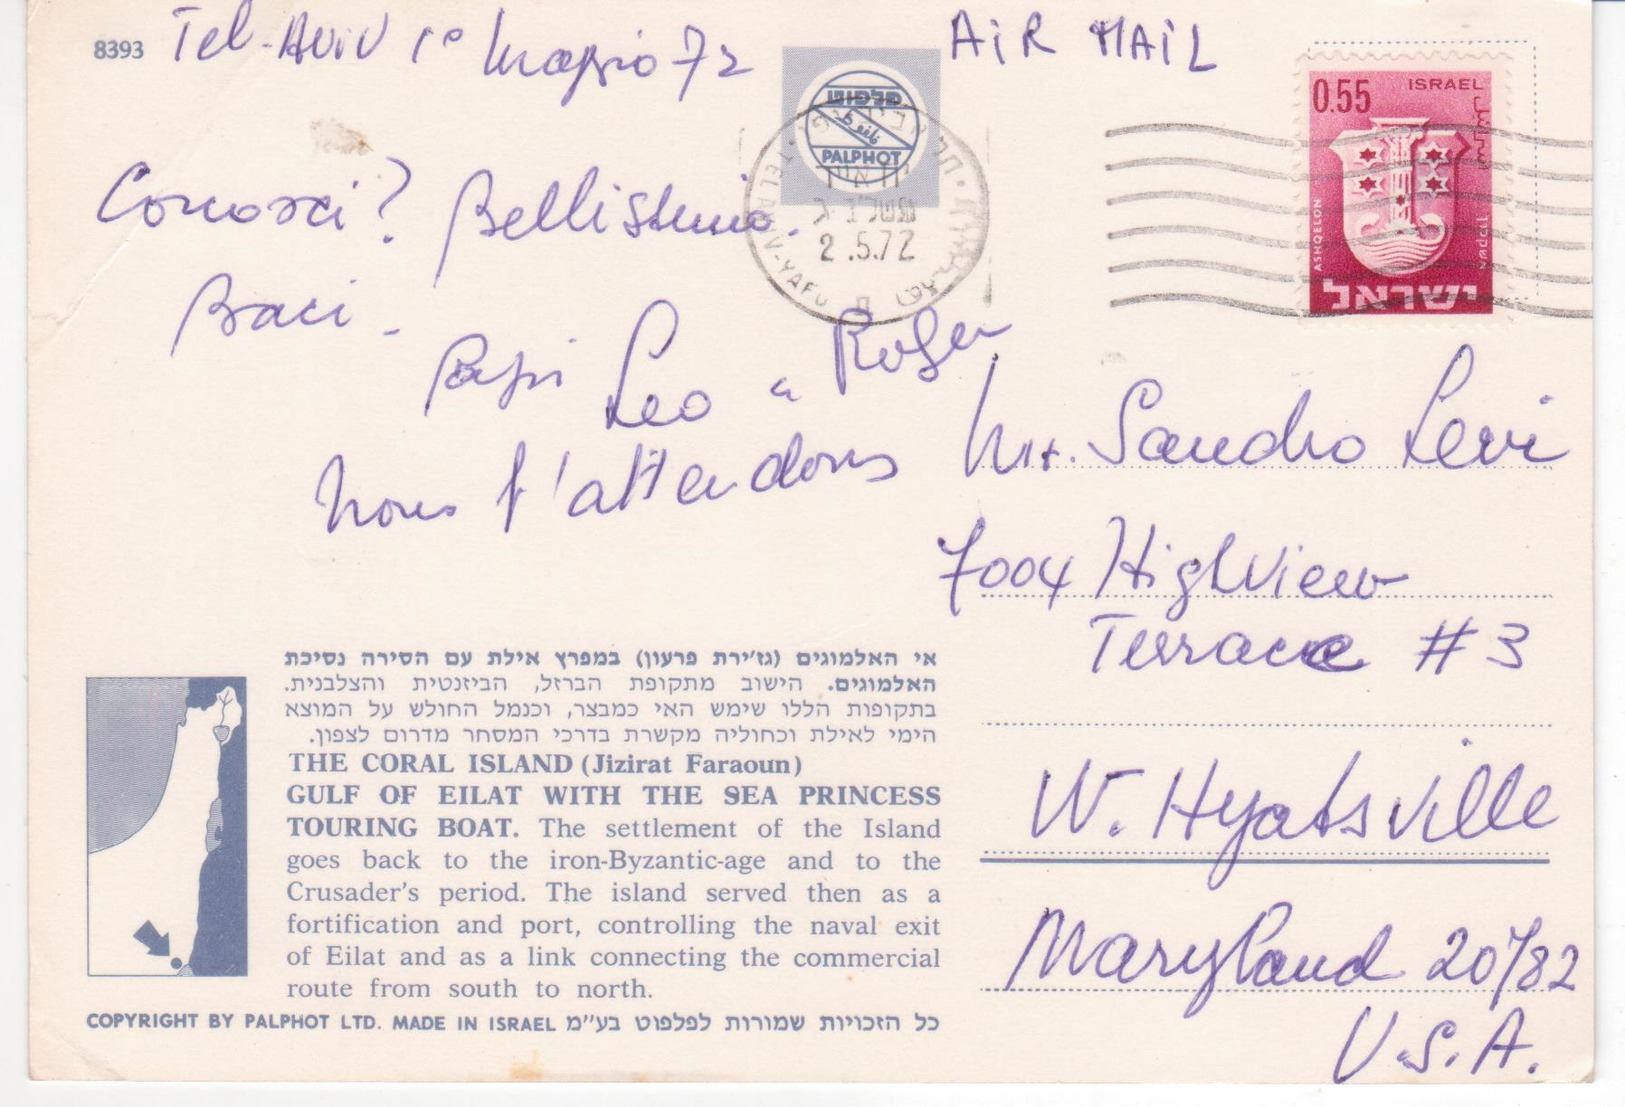 8393 Tel-Aviv 1° Maggio 72
AiR MAiL
פלפוט
PALPHOT
TEL AVIV-YAFO
2.5.72
0.55 ISRAEL
ASHQELON
ישראל
Conosci? Bellissimo.
Baci -
Papi Leo a Roger
Nous t'attendons
Mr. Sandro Levi
7004 Highview
Terrace #3
W. Hyattsville
Maryland 20782
U.S.A.
אי האלמוגים (גז'ירת פרעון) במפרץ אילת עם הסירה נסיכת
האלמוגים. הישוב מתקופת הברזל, הביזנטית והצלבנית.
בתקופות הללו שימש האי כמבצר, וכנמל החולש על המוצא
הימי לאילת וכחוליה מקשרת בדרכי המסחר מדרום לצפון.
THE CORAL ISLAND (Jizirat Faraoun)
GULF OF EILAT WITH THE SEA PRINCESS
TOURING BOAT. The settlement of the Island
goes back to the iron-Byzantic-age and to the
Crusader's period. The island served then as a
fortification and port, controlling the naval exit
of Eilat and as a link connecting the commercial
route from south to north.
COPYRIGHT BY PALPHOT LTD. MADE IN ISRAEL כל הזכויות שמורות לפלפוט בע"מ